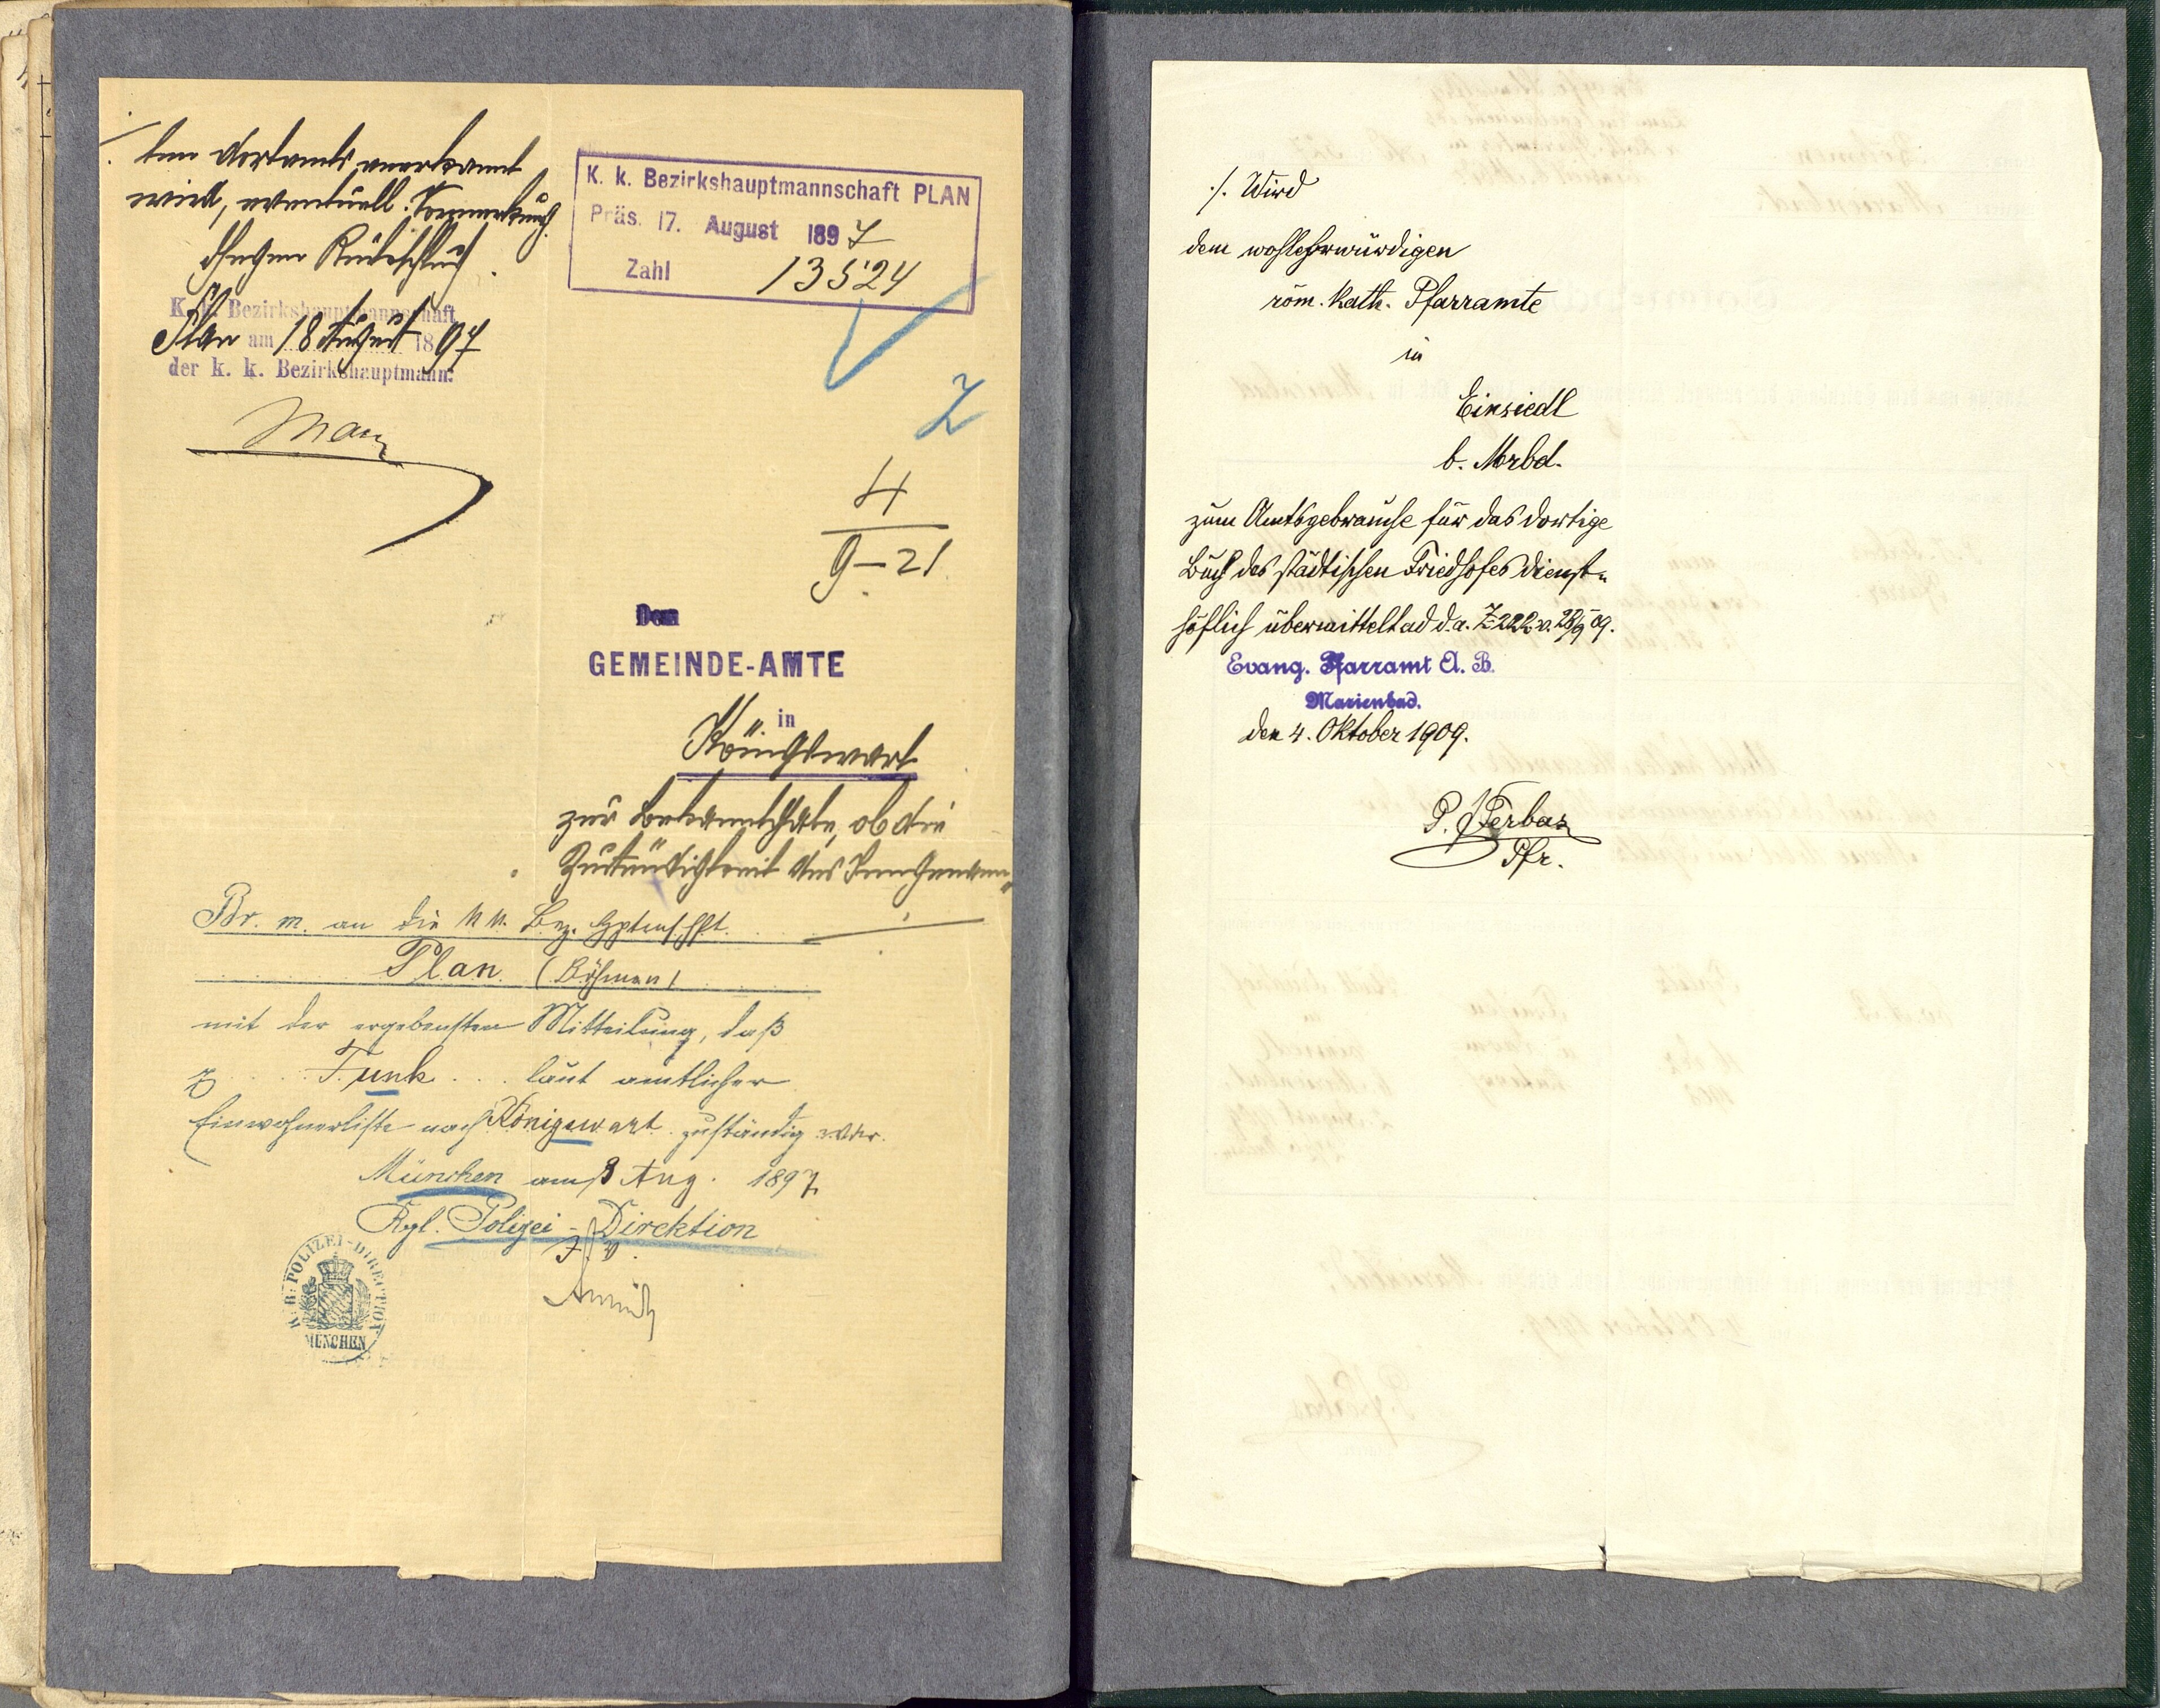 ten dortamts anerkannt
wird, eventuell Vormerkung
gegen Rückschluß
K. k. Bezirkshauptmannschaft
Plan am 18 August 1897
der k. k. Bezirkshauptmann:
K. k. Bezirkshauptmannschaft PLAN
Präs. 17. August 1897
Zahl 13524
4
9-21
Dem
GEMEINDE-AMTE
in
Königswart
zur Bekanntgabe, ob die
Zuständigkeit des Inngenann-
Br. m. an die k. k. Bez. Hptmschft.
Plan (Böhmen)
mit der ergebensten Mitteilung, daß
Funk laut amtlicher
Einwohnerliste nach Königswart zuständig war.
München am 8 Aug. 1897
Kgl. Polizei-Direktion
K. B. POLIZEI-DIRECTION
MÜNCHEN
./. Wird
dem wohlehrwürdigen
röm. kath. Pfarramte
in
Einsiedl
b. Mrbd.
zum Amtsgebrauche für das dortige
Buch des städtischen Friedhofes dienst-
höflich übermittelt ad d. a. Z 222 v. 28/9 09.
Evang. Pfarramt A. B.
Marienbad.
den 4. Oktober 1909.
Pfr.